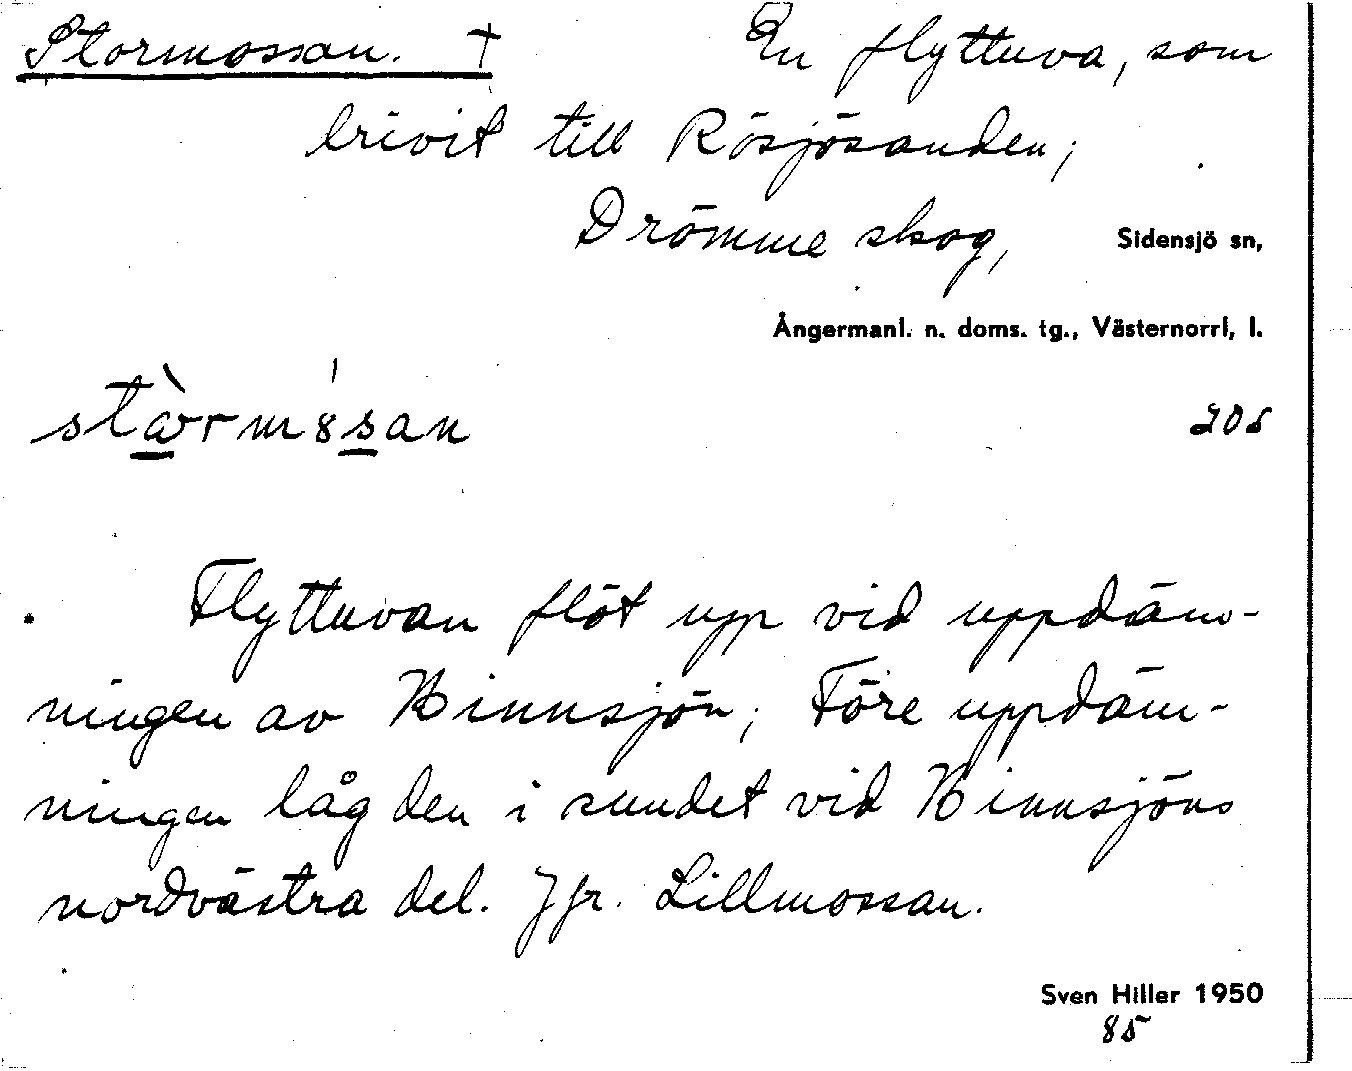 Stormossan. † En flyttuva, som
brivit till Rösjösanden;
Drömme skog, Sidensjö sn,
Ångermanl. n. doms. tg., Västernorrl, l.
205
Flyttuvan flöt upp vid uppdäm-
ningen av Binnsjön; Före uppdäm-
ningen låg den i sundet vid Binnsjöns
nordvästra del. Jfr. Lillmossan.
Sven Hiller 1950
85